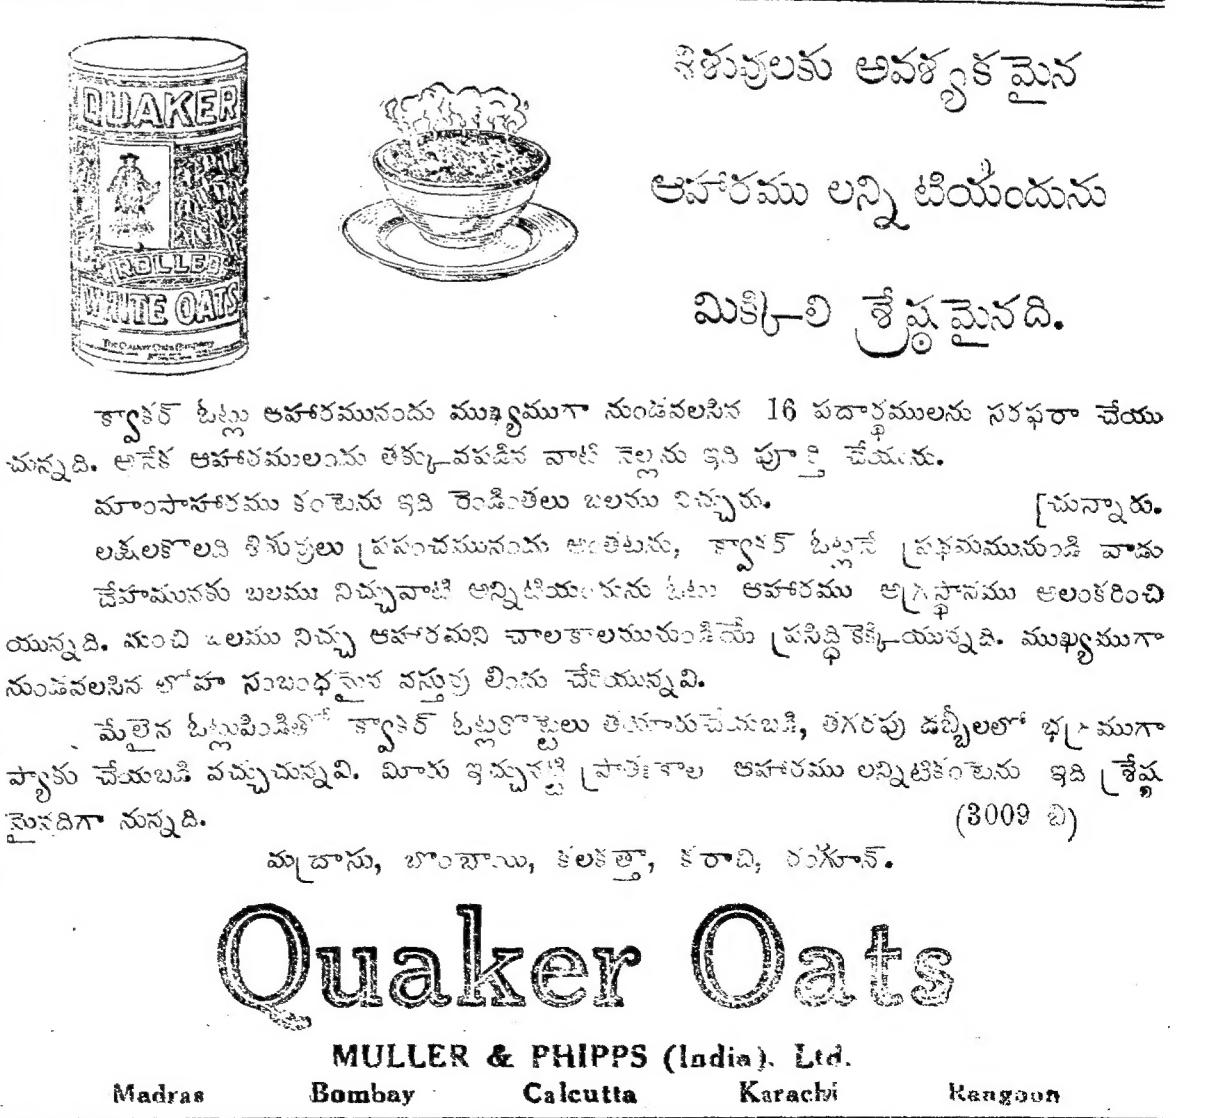 QUAKER
ROLLED
WHITE OATS
The Quaker Oats Company
శిశువులకు అవశ్యకమైన
ఆహారము లన్ని టియందును
మిక్కిలి శ్రేష్ఠమైనది.
క్వాకర్ ఓట్లు ఆహారమునందు ముఖ్యముగా నుండవలసిన 16 పదార్థములను సరఫరా చేయు
చున్నది. అనేక ఆహారములందు తక్కువపడిన వాటి నెల్లను ఇది పూర్తి చేయును.
మాంసాహారము కంటెను ఇది రెండింతలు బలము నిచ్చును. [చున్నారు.
లక్షలకొలది శిశువులు ప్రపంచమునందు అంతటను, క్వాకర్ ఓట్లనే ప్రథమమునుండి వాడు
దేహమునకు బలము నిచ్చువాటి అన్నిటియందును ఓట్లు ఆహారము అగ్రస్థానము అలంకరించి
యున్నది. మంచి బలము నిచ్చు ఆహారమని చాలకాలమునుండియే ప్రసిద్ధికెక్కియున్నది. ముఖ్యముగా
నుండవలసిన లోహ సంబంధమైన వస్తువు లిందు చేరియున్నవి.
మేలైన ఓట్లుపిండితో క్వాకర్ ఓట్లరొట్టెలు తయారుచేయబడి, తగరపు డబ్బీలలో భద్రముగా
ప్యాకు చేయబడి వచ్చుచున్నవి. మీరు ఇచ్చునట్టి ప్రాతఃకాల ఆహారము లన్నిటికంటెను ఇది శ్రేష్ఠ
మైనదిగా నున్నది. (3009 బి)
మద్రాసు, బొంబాయి, కలకత్తా, కరాచి, రంగూన్.
Quaker Oats
MULLER & PHIPPS (India). Ltd.
Madras Bombay Calcutta Karachi Rangoon